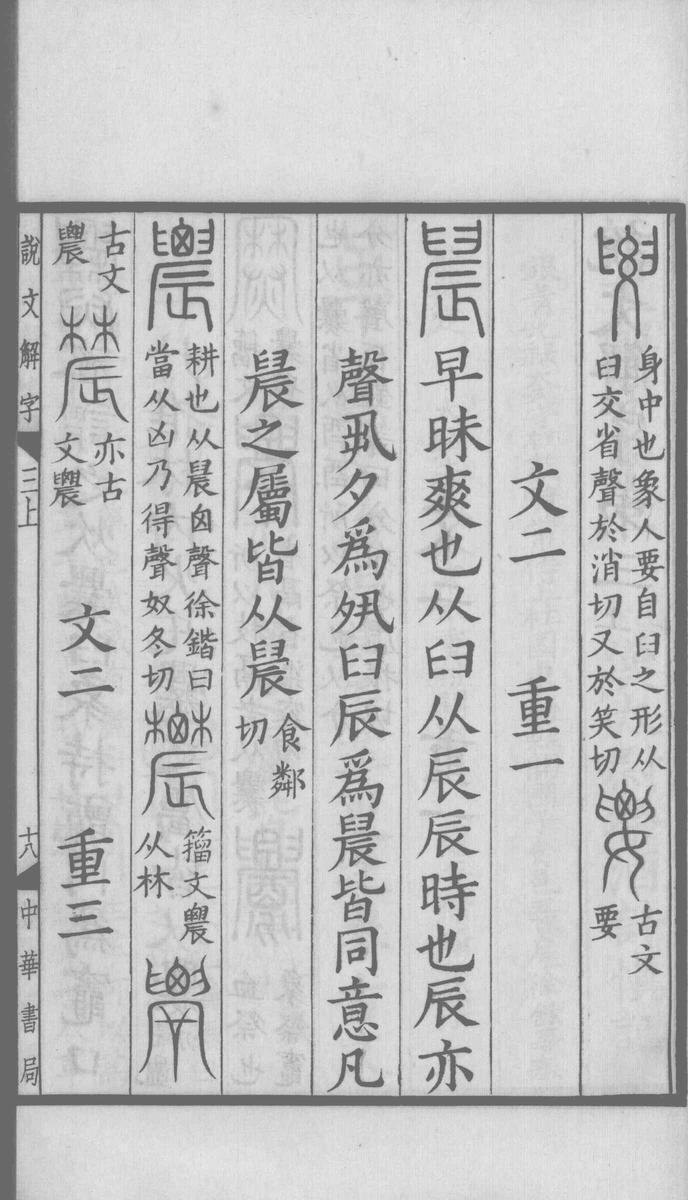 𦥼身中也象人要自𦥑之形从
𦥑交省聲於消切又於笑切
𡢗古文
要
文二　重一
䢅早昧爽也从𦥑从辰辰時也辰亦
聲𠃨夕爲𡖊𦥑辰爲䢅皆同意凡
䢅之屬皆从䢅食鄰
切
耕也从䢅囟聲徐鍇曰
當从凶乃得聲奴冬切
籒文䢉
从林
古文
䢉
亦古
文䢉
文二　重三
說文解字　三上　十八　中華書局